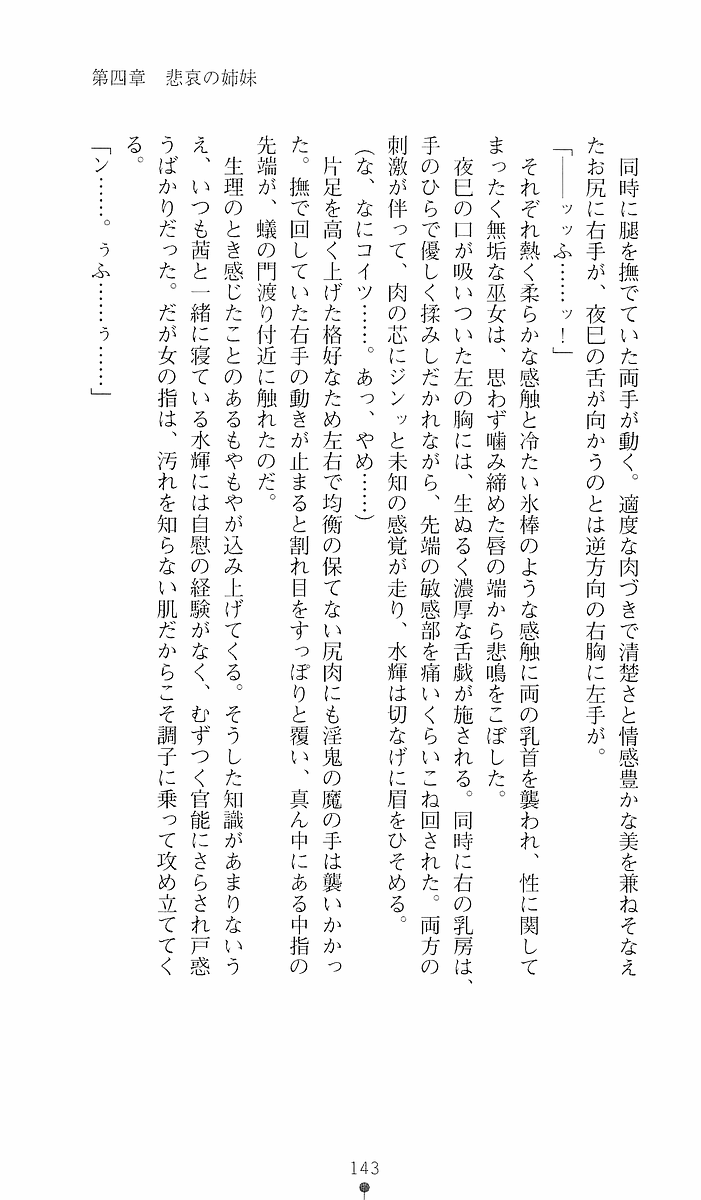 第四章　悲哀の姉妹
　同時に腿を撫でていた両手が動く。適度な肉づきで清楚さと情感豊かな美を兼ねそなえ
たお尻に右手が、夜巳の舌が向かうのとは逆方向の右胸に左手が。
「――ッッふ……ッ！」
　それぞれ熱く柔らかな感触と冷たい氷棒のような感触に両の乳首を襲われ、性に関して
まったく無垢な巫女は、思わず噛み締めた唇の端から悲鳴をこぼした。
　夜巳の口が吸いついた左の胸には、生ぬるく濃厚な舌戯が施される。同時に右の乳房は、
手のひらで優しく揉みしだかれながら、先端の敏感部を痛いくらいこね回された。両方の
刺激が伴って、肉の芯にジンッと未知の感覚が走り、水輝は切なげに眉をひそめる。
（な、なにコイツ……。あっ、やめ……）
　片足を高く上げた格好なため左右で均衡の保てない尻肉にも淫鬼の魔の手は襲いかかっ
た。撫で回していた右手の動きが止まると割れ目をすっぽりと覆い、真ん中にある中指の
先端が、蟻の門渡り付近に触れたのだ。
　生理のとき感じたことのあるもやもやが込み上げてくる。そうした知識があまりないう
え、いつも茜と一緒に寝ている水輝には自慰の経験がなく、むずつく官能にさらされ戸惑
うばかりだった。だが女の指は、汚れを知らない肌だからこそ調子に乗って攻め立ててく
る。
「ン……。ぅふ……ぅ……」
143